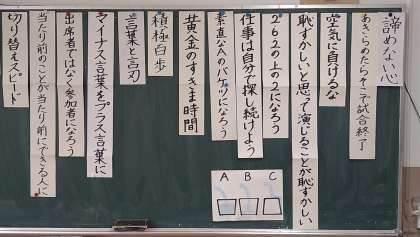 諦めない心
あきらめたらそこで試合終了
空気に負けるな
恥ずかしいと思って演じることが恥ずかしい
262の上の2になろう
仕事は自分で探し続けよう
素直なAのバケツになろう
黄金のすきま時間
積極百歩
言葉と言刃
マイナス言葉をプラス言葉に
出席者ではなく参加者になろう
当たり前のことが当たり前にできる人に
切り替えスピード
A B C